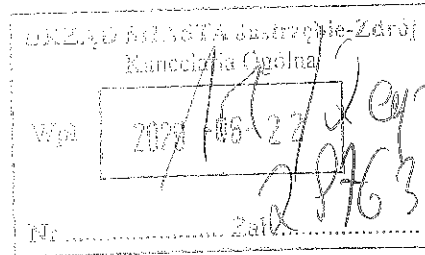 URZĄD MIASTA Jastrzębie-Zdrój
Kancelaria Ogólna
Wpł. 2020 -06- 22
Nr ........... Zał. ...........
28763